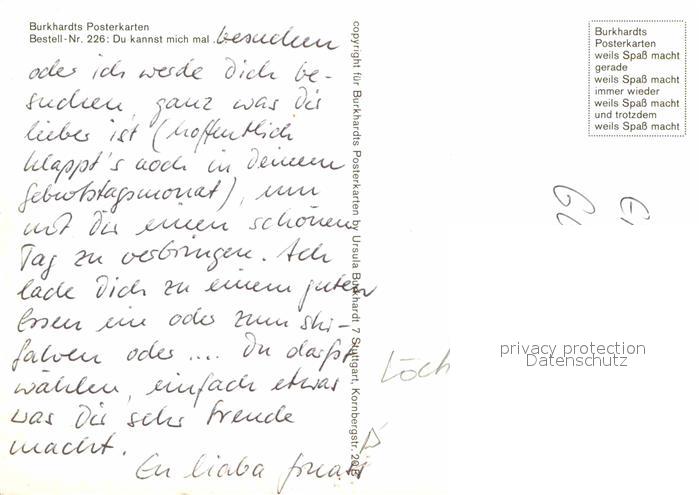 Burkhardts Posterkarten
Bestell-Nr. 226: Du kannst mich mal . besuchen
oder ich werde Dich be-
suchen, ganz was Dir
lieber ist (hoffentlich
klappt's noch in Deinem
Geburtstagsmonat), um
mit Dir einen schönen
Tag zu verbringen. Ich
lade Dich zu einem guten
Essen ein oder zum Ski-
fahren oder .... Du darfst
wählen, einfach etwas
was Dir sehr Freude
macht.
En liaba
copyright für Burkhardts Posterkarten by Ursula Burkhardt 7 Stuttgart, Kornbergstr.
Burkhardts
Posterkarten
weils Spaß macht
gerade
weils Spaß macht
immer wieder
weils Spaß macht
und trotzdem
weils Spaß macht
privacy protection
Datenschutz